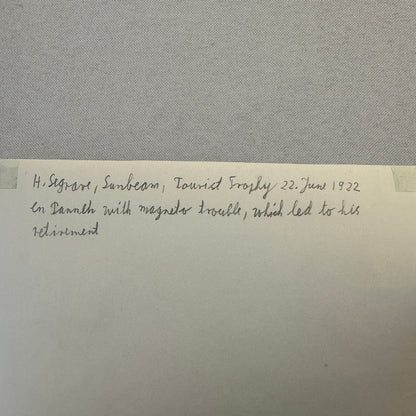 H. Segrave, Sunbeam, Tourist Trophy 22. June 1922
en Panneh with magneto trouble, which led to his
retirement